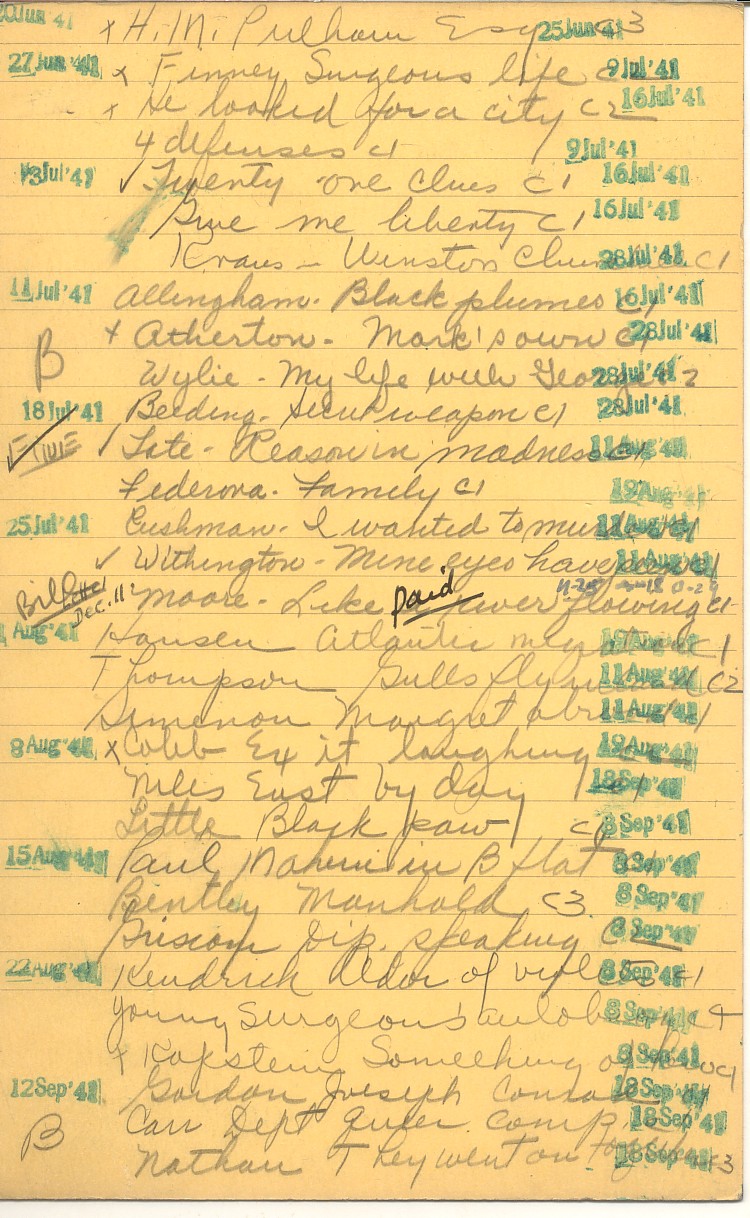 20Jun'41 x H. M. Pulham Esq 25Jun'41 c3
27Jun'41 x Finney Surgeons life c 9Jul'41
x He looked for a city c2 16Jul'41
4 defenses c1 9Jul'41
3Jul'41 ✓ Twenty one clues c1 16Jul'41
Give me liberty c1 16Jul'41
Kraus - Winston 28Jul'41 c1
11Jul'41 Allingham. Black plumes c1 16Jul'41
x Atherton - Mark's own c1 28Jul'41
B Wylie - My life with George 28Jul'41 2
18Jul'41 Beeding - Secret weapon c1 28Jul'41
✓ ✓ Tate - Reason in madness c1 11Aug'41
Federova. Family c1 19Aug'41
25Jul'41 Cushman - I wanted to 11Aug'41
✓ Withington - Mine eyes have seen 11Aug'41
Dec. 11 Moore - Like a river flowing c1 Paid
Aug'41 Hansen Atlantic 19Aug'41 c1
Thompson Gulls fly 11Aug'41 c2
Simenon Maigret abr 11Aug'41
8Aug'41 x Cobb Exit laughing 19Aug'41
Niles East by day 18Sep'41
Little Black paw c1 8Sep'41
15Aug'41 Paul in B flat 8Sep'41
Bentley Manhold c3 8Sep'41
Griscom Dip. speaking c2 8Sep'41
22Aug'41 Kendrick Odor of violets 8Sep'41 c1
Young Surgeon's autob 8Sep'41 4
x Kapstein Something of 8Sep'41 c1
12Sep'41 Gordon Joseph Conrad 18Sep'41
Carr Dept queer comp. 18Sep'41
B Nathan They went on together 18Sep'41 3